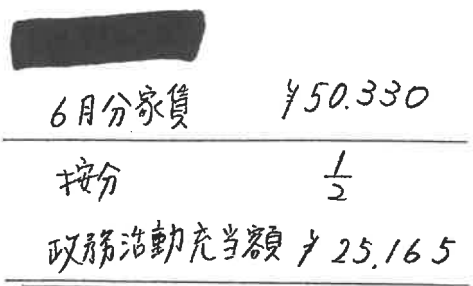 6月分家賃 ¥50.330
按分 1/2
政務活動充当額 ¥25,165